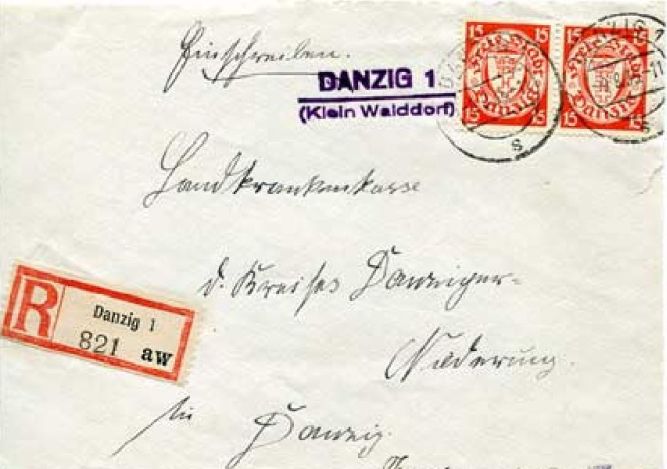 Einschreiben.
DANZIG 1
(Klein Walddorf)
15 15 15 15
Freie Stadt
Danzig
15 15 15
Freie Stadt
Danzig
S
S
Landkrankenkasse
d. Kreises Danziger-
Niederung.
R
Danzig 1
821 aw
in Danzig.